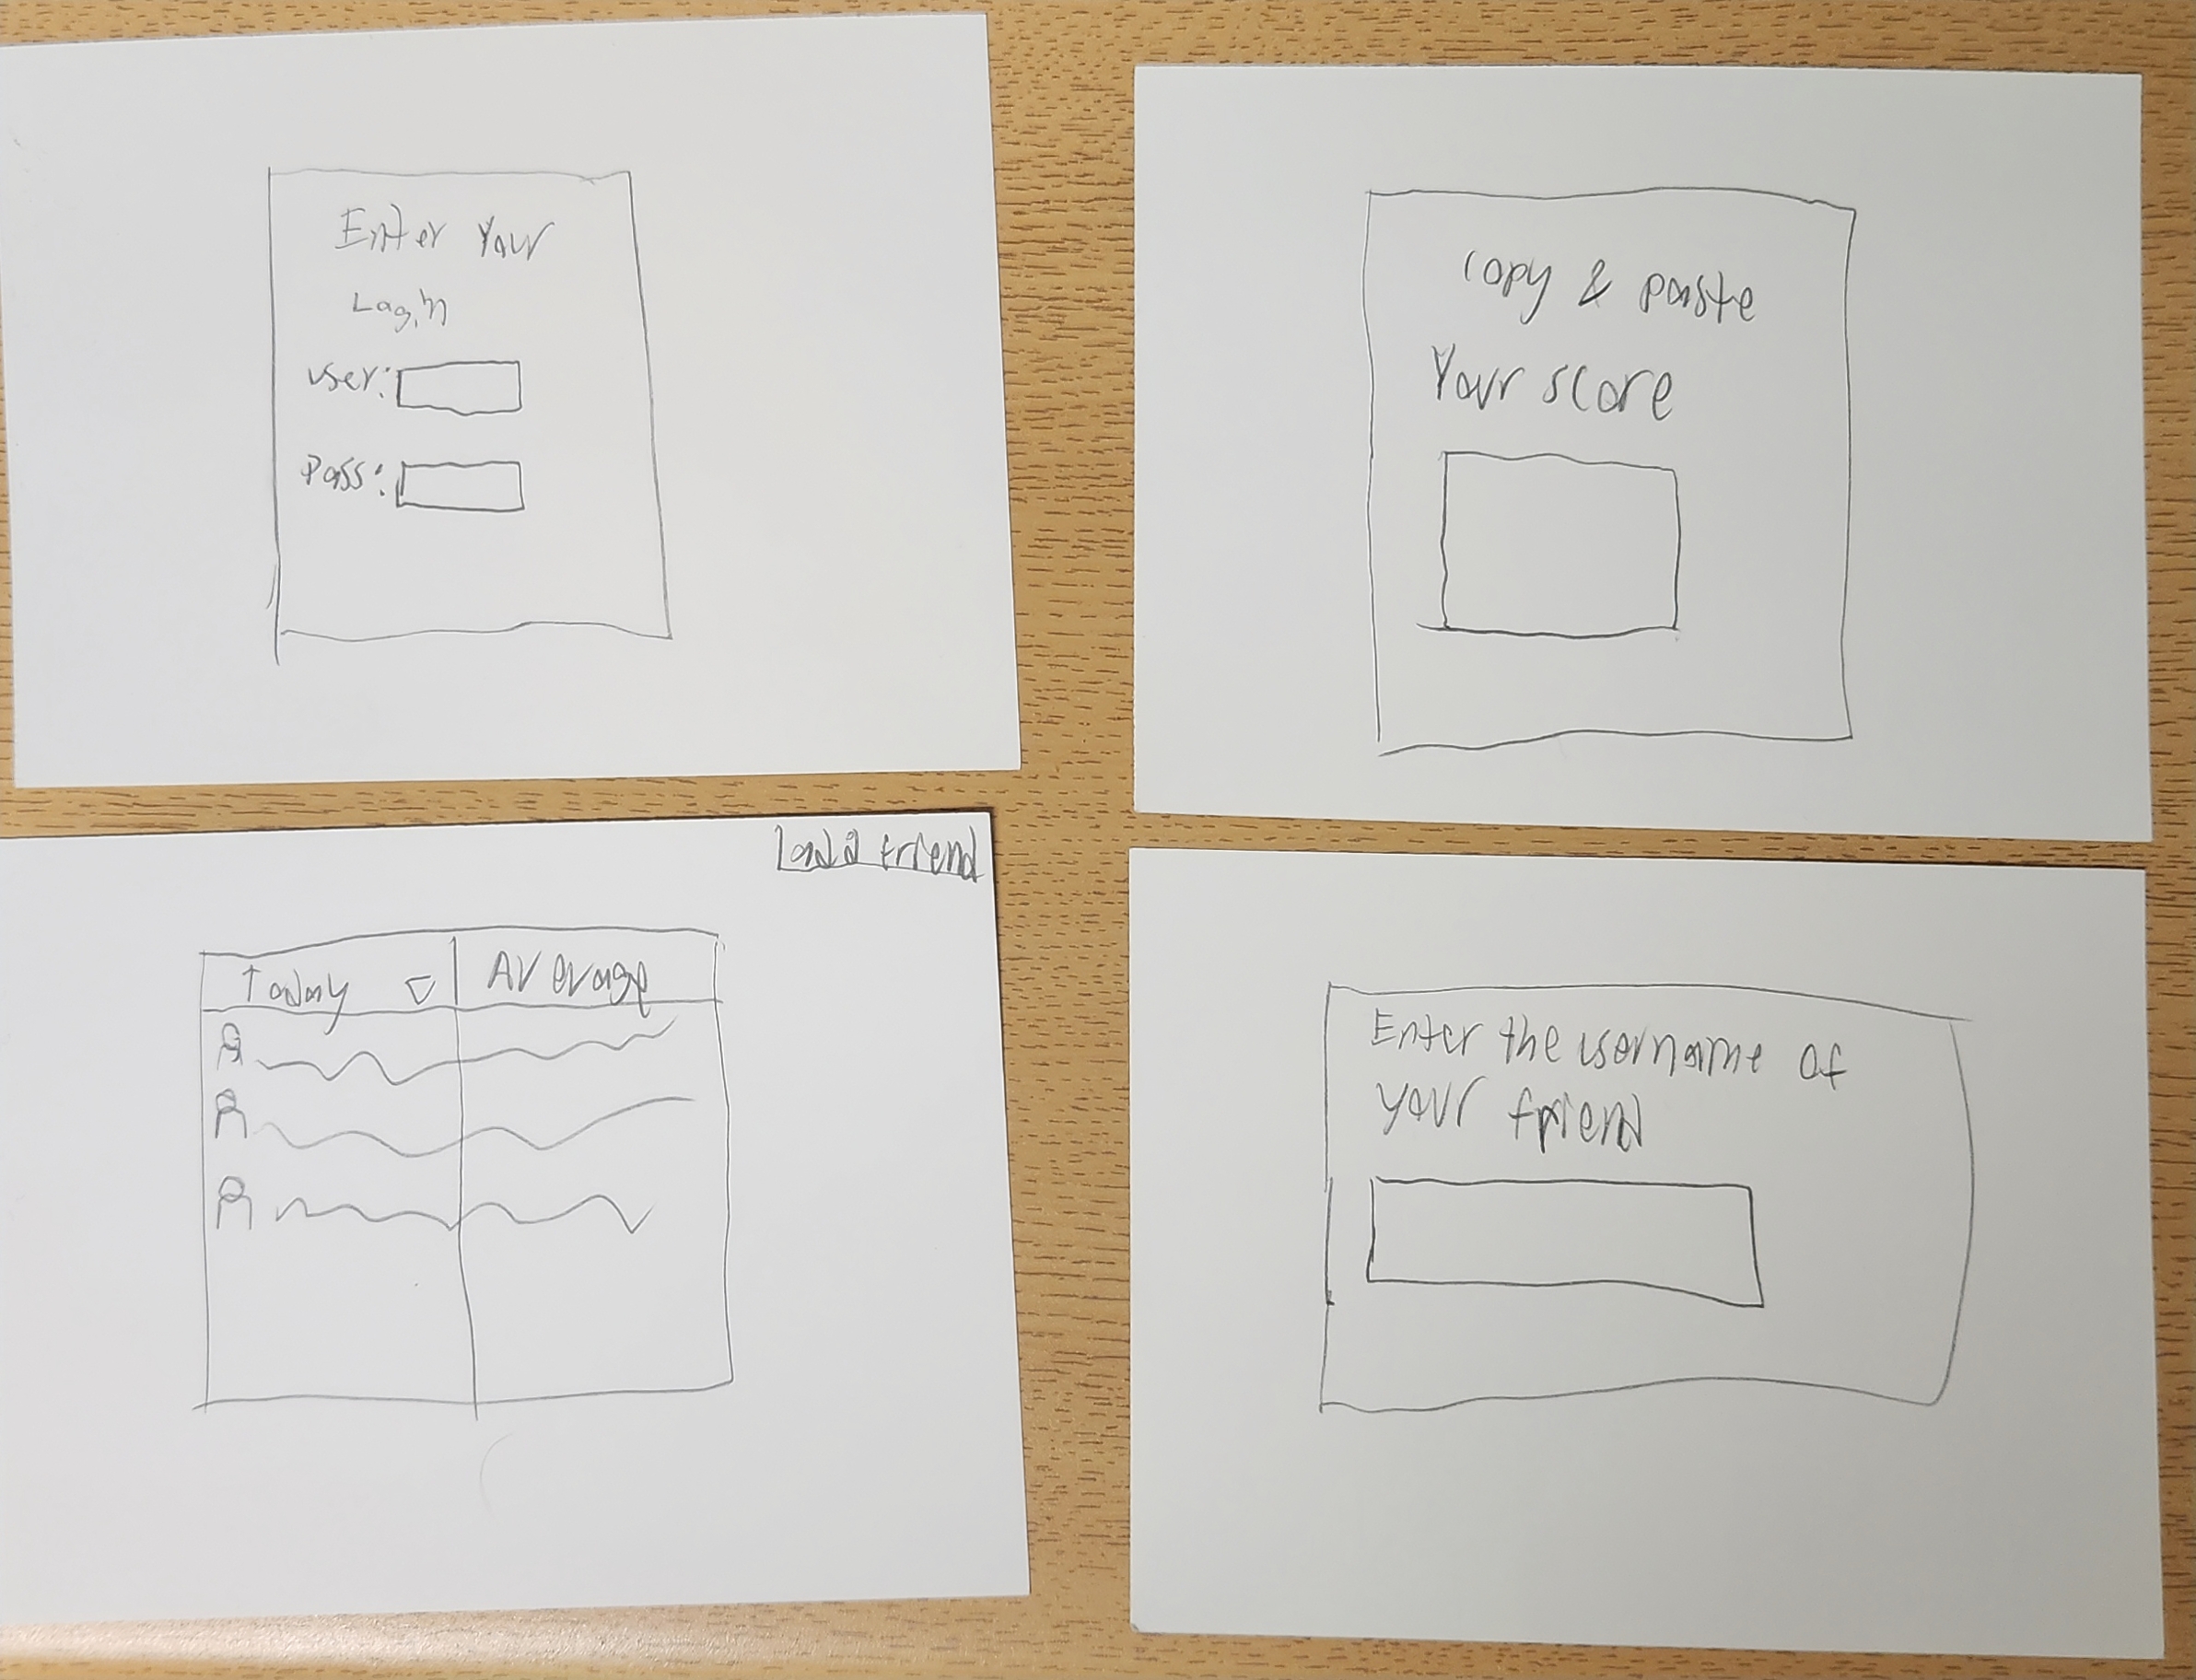 Enter Your
Login
User:
Pass:
Copy & paste
Your score
add friend
Today
Average
Enter the username of
your friend